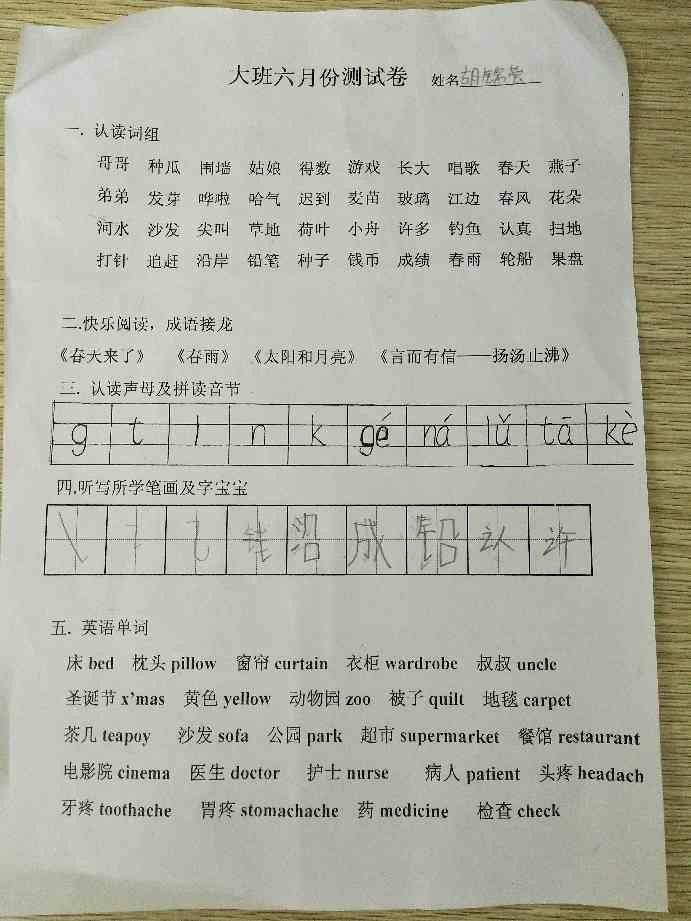 大班六月份测试卷 姓名 胡
一. 认读词组
哥哥 种瓜 围墙 姑娘 得数 游戏 长大 唱歌 春天 燕子
弟弟 发芽 哗啦 哈气 迟到 麦苗 玻璃 江边 春风 花朵
河水 沙发 尖叫 草地 荷叶 小舟 许多 钓鱼 认真 扫地
打针 追赶 沿岸 铅笔 种子 钱币 成绩 春雨 轮船 果盘
二.快乐阅读，成语接龙
《春天来了》 《春雨》 《太阳和月亮》 《言而有信——扬汤止沸》
三. 认读声母及拼读音节
g t l n k gé ná lǔ tā kè
四.听写所学笔画及字宝宝
钱 沿 成 铅 认 许
五. 英语单词
床 bed 枕头 pillow 窗帘 curtain 衣柜 wardrobe 叔叔 uncle
圣诞节 x'mas 黄色 yellow 动物园 zoo 被子 quilt 地毯 carpet
茶几 teapoy 沙发 sofa 公园 park 超市 supermarket 餐馆 restaurant
电影院 cinema 医生 doctor 护士 nurse 病人 patient 头疼 headach
牙疼 toothache 胃疼 stomachache 药 medicine 检查 check